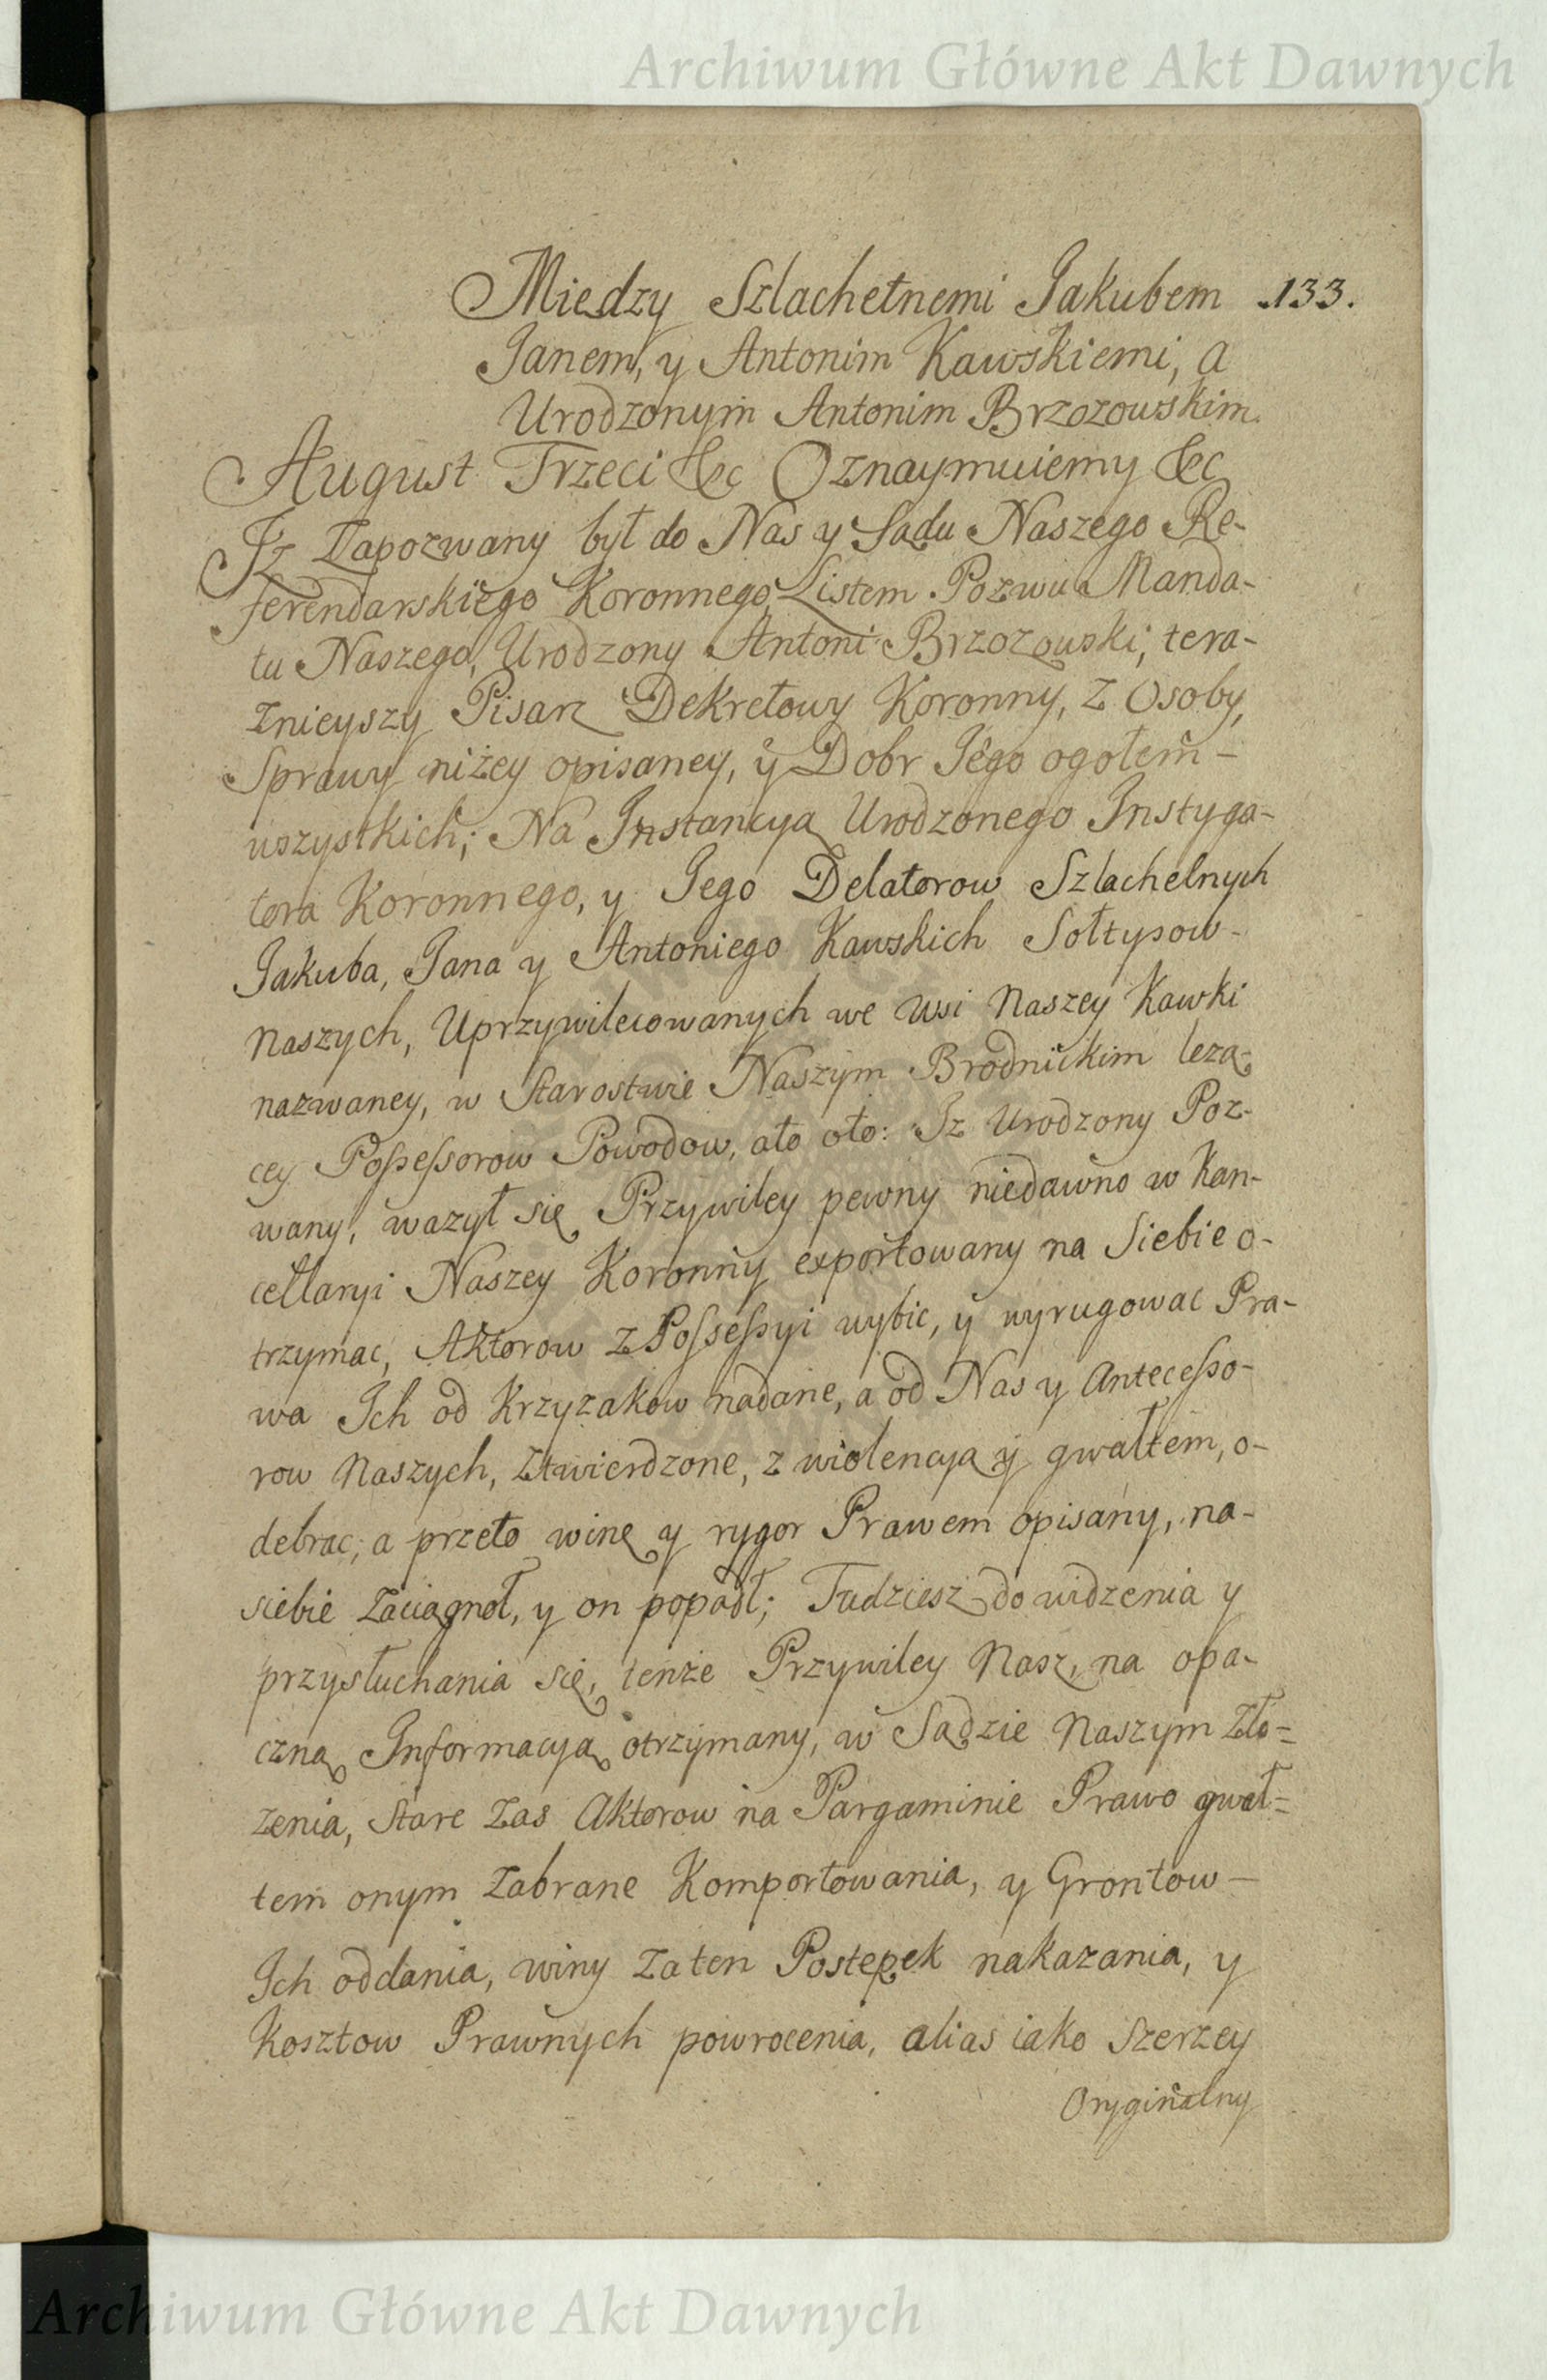 Archiwum Główne Akt Dawnych
Miedzy Szlachetnemi Jakubem 133.
Janem, y Antonim Kawskiemi, a
Urodzonym Antonim Brzozowskim.
August Trzeci &c Oznaymuiemy &c
Iz Zapozwany był do Nas y Sądu Naszego Re-
ferendarskiego Koronnego Listem Pozwu Manda-
tu Naszego, Urodzony Antoni Brzozowski, tera-
znieyszy Pisarz Dekretowy Koronny, z Osoby,
Sprawy niżey opisaney, y Dobr Jego ogołem-
wszystkich; Na Instancyą Urodzonego Instyga-
tora Koronnego, y Jego Delatorow Szlachetnych
Jakuba, Jana y Antoniego Kawskich Sołtysow-
naszych, Uprzywileiowanych we wsi naszey Kawki
nazwaney, w Starostwie Naszym Brodnickim lezą-
cey Possessorow Powodow, ato oto: Iz Urodzony Poz-
wany, wazył się Przywiley pewny niedawno w Kan-
cellaryi Naszey Koronny exportowany na Siebie o-
trzymac, Aktorow z Possessyi wybic, y wyrugowac Pra-
wa Ich od Krzyzakow nadane, a od Nas y Antecesso-
row Naszych, ztwierdzone, z wiolencyą y gwałtem, o-
debrac, a przeto winę y rygor Prawem opisany, na-
siebie zaciągnoł, y on popadł; Tudziesz do widzenia y
przysłuchania się, tenże Przywiley Nasz, na opa-
czną Informacyą otrzymany, w Sądzie Naszym zło=
zenia, stare zas Aktorow na Pargaminie Prawo gwał=
tem onym zabrane Komportowania, y Grontow-
Ich oddania, winy za ten Postępek nakazania, y
Kosztow Prawnych powrocenia, alias iako szerzey
Oryginalny
Archiwum Główne Akt Dawnych